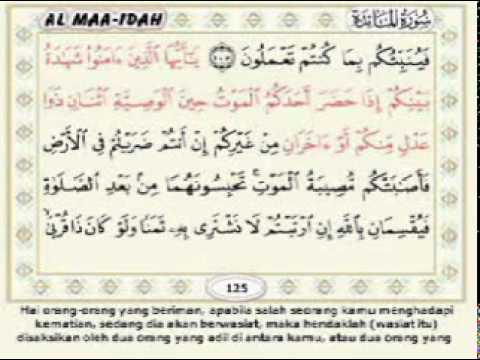 AL MAA-IDAH
سُورَةُ الْمَائِدَة
فَيُنَبِّئُكُم بِمَا كُنتُمْ تَعْمَلُونَ ١٠٥ يَـٰٓأَيُّهَا ٱلَّذِينَ ءَامَنُوا۟ شَهَـٰدَةُ
بَيْنِكُمْ إِذَا حَضَرَ أَحَدَكُمُ ٱلْمَوْتُ حِينَ ٱلْوَصِيَّةِ ٱثْنَانِ ذَوَا
عَدْلٍ مِّنكُمْ أَوْ ءَاخَرَانِ مِنْ غَيْرِكُمْ إِنْ أَنتُمْ ضَرَبْتُمْ فِى ٱلْأَرْضِ
فَأَصَـٰبَتْكُم مُّصِيبَةُ ٱلْمَوْتِ ۚ تَحْبِسُونَهُمَا مِنۢ بَعْدِ ٱلصَّلَوٰةِ
فَيُقْسِمَانِ بِٱللَّهِ إِنِ ٱرْتَبْتُمْ لَا نَشْتَرِى بِهِۦ ثَمَنًا وَلَوْ كَانَ ذَا قُرْبَىٰ ۙ
125
Hai orang-orang yang beriman, apabila salah seorang kamu menghadapi
kematian, sedang dia akan berwasiat, maka hendaklah (wasiat itu)
disaksikan oleh dua orang yang adil di antara kamu, atau dua orang yang